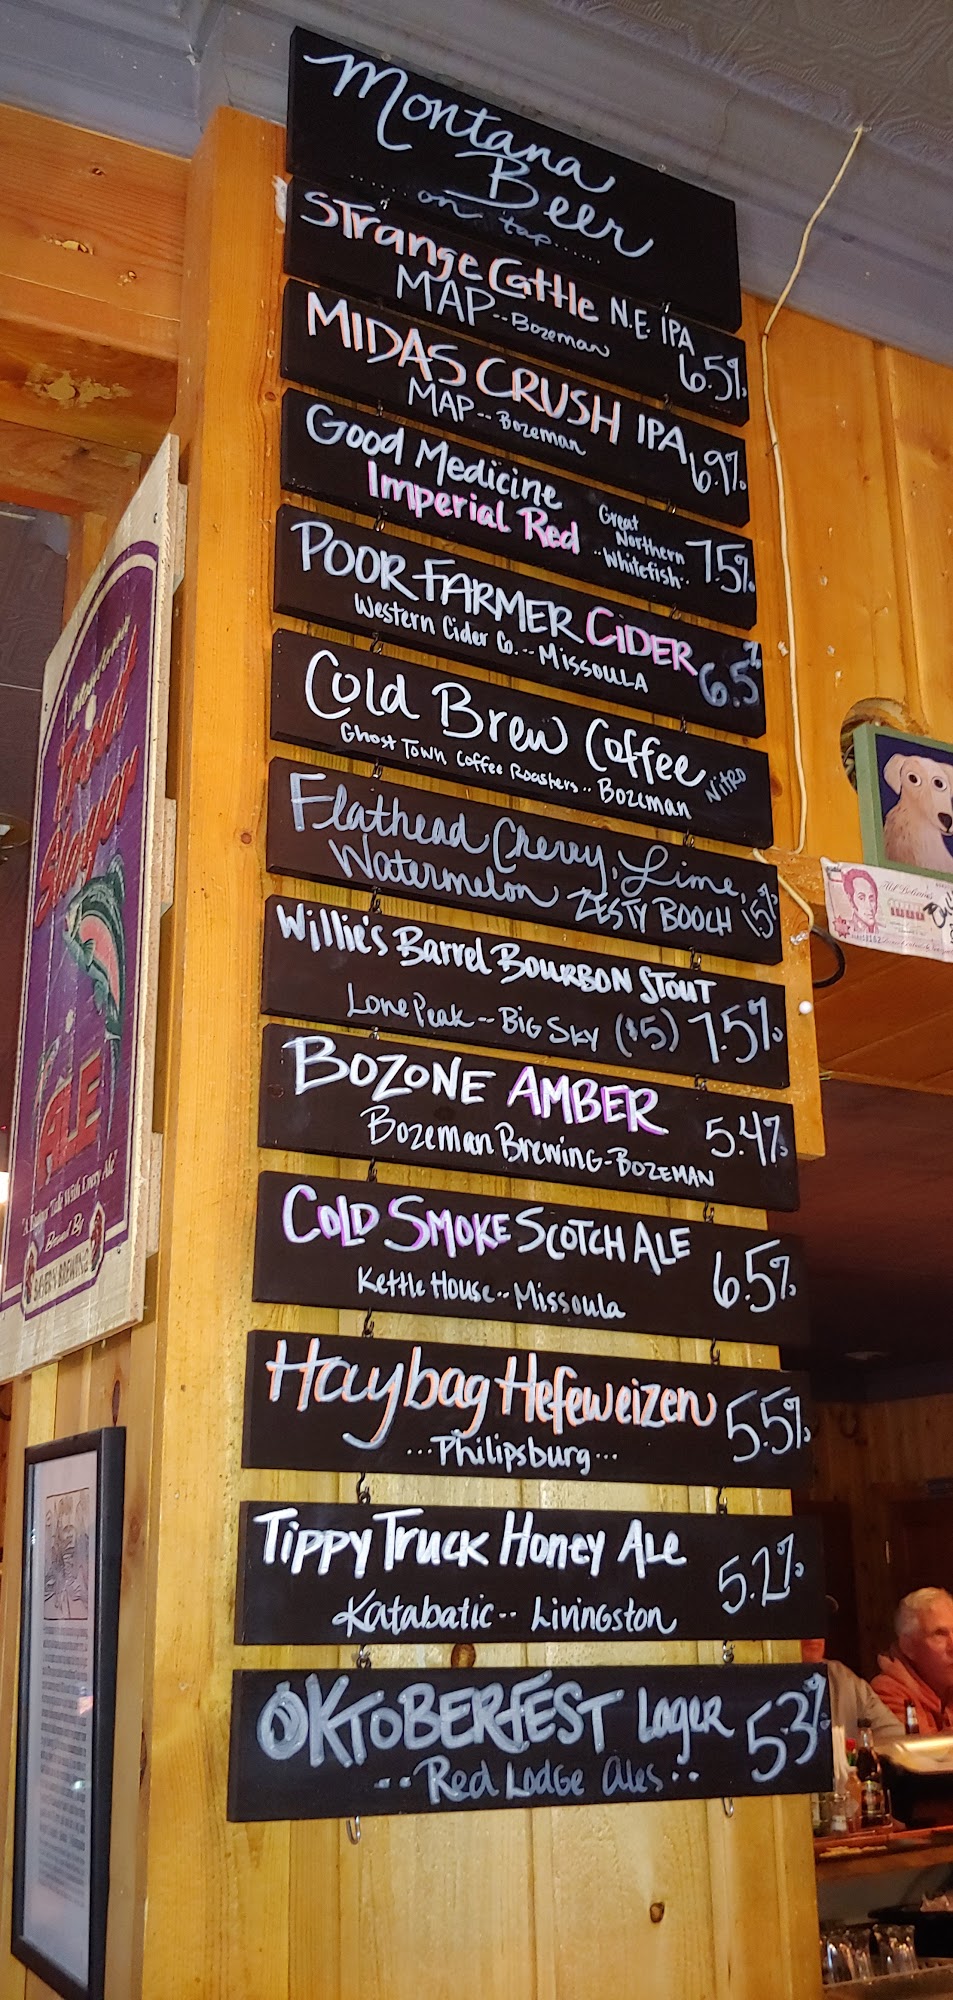 Montana
Beer
...... on tap ......
Strange Cattle N.E. IPA
MAP -- Bozeman 6.5%
MIDAS CRUSH IPA
MAP -- Bozeman 6.9%
Good Medicine
Imperial Red
Great
Northern
.. Whitefish..
7.5%
POOR FARMER CIDER
Western Cider Co. -- MISSOULA 6.5%
Cold Brew Coffee
Ghost Town Coffee Roasters .. Bozeman Nitro
Flathead Cherry, Lime,
Watermelon ZESTY BOOCH 1.5%
Willie's Barrel BOURBON STOUT
Lone Peak -- Big Sky ($5) 7.5%
BOZONE AMBER
Bozeman Brewing - BOZEMAN 5.4%
COLD SMOKE SCOTCH ALE
Kettle House -- Missoula 6.5%
Haybag Hefeweizen
... Philipsburg ... 5.5%
Tippy Truck Honey Ale
Katabatic -- Livingston 5.2%
OKTOBERFEST Lager
-- Red Lodge Ales .. 5.3%
ALE
Brewed By